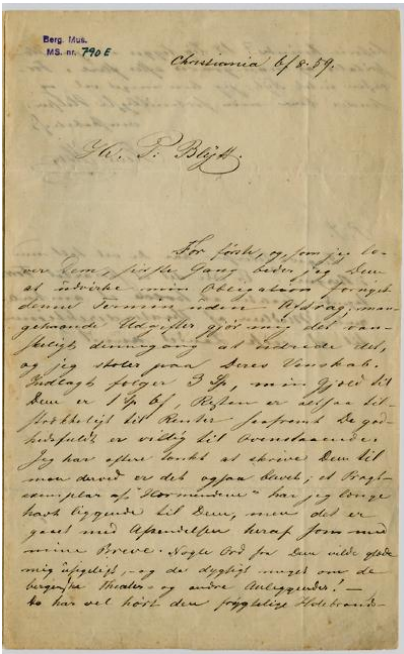 Berg. Mus.
MS. nr. 790 E
Christiania 6/8. 59.
Hr. P. Blytt.
For første, og som jeg lo-
ver Dem, sidste Gang beder jeg Dem
at udvirke min Obligation fornyet
denne Termin uden Afdrag; man-
gehaande Udgifter gjør mig det van-
skeligt dennegang at udrede det,
og jeg stoler paa Deres Venskab.
Indlagt følger 3 Sp, min Gjeld til
Dem er 1 Sp 6 f, Resten er altsaa til-
strækkeligt til Renter saafremt De god-
hedsfuldt er villig til Ovenstaaende.
Jeg har oftere tænkt at skrive Dem til
men derved er det ogsaa blevet; et Pragt-
exemplar af "Hærmændene" har jeg længe
havt liggende til Dem, men det er
gaaet med Afsendelsen heraf som med
mine Breve. Nogle Ord fra Dem vilde glæde
mig usigeligt, og da dygtigt meget om de
bergenske Theater- og andre Anliggender! —
De har vel hørt den frygtelige Hildebrands-